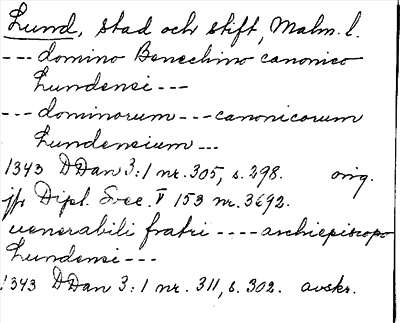 Lund, stad och stift, Malm. l.
--- domino Benechino canonico
Lundensi ---
--- dominorum --- canonicorum
Lundensium ---
1343 DDan 3:1 nr. 305, s. 298. orig.
jfr Dipl. Svec. V 153 nr. 3692.
uenerabili fratri ---- archiepiscopo
Lundensi ---
1343 DDan 3:1 nr. 311, s. 302. avskr.